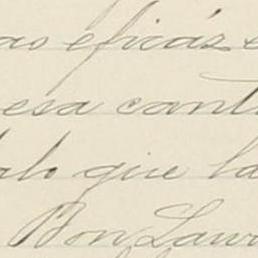 as eficás e
esa cant
alo que la
Bon Law